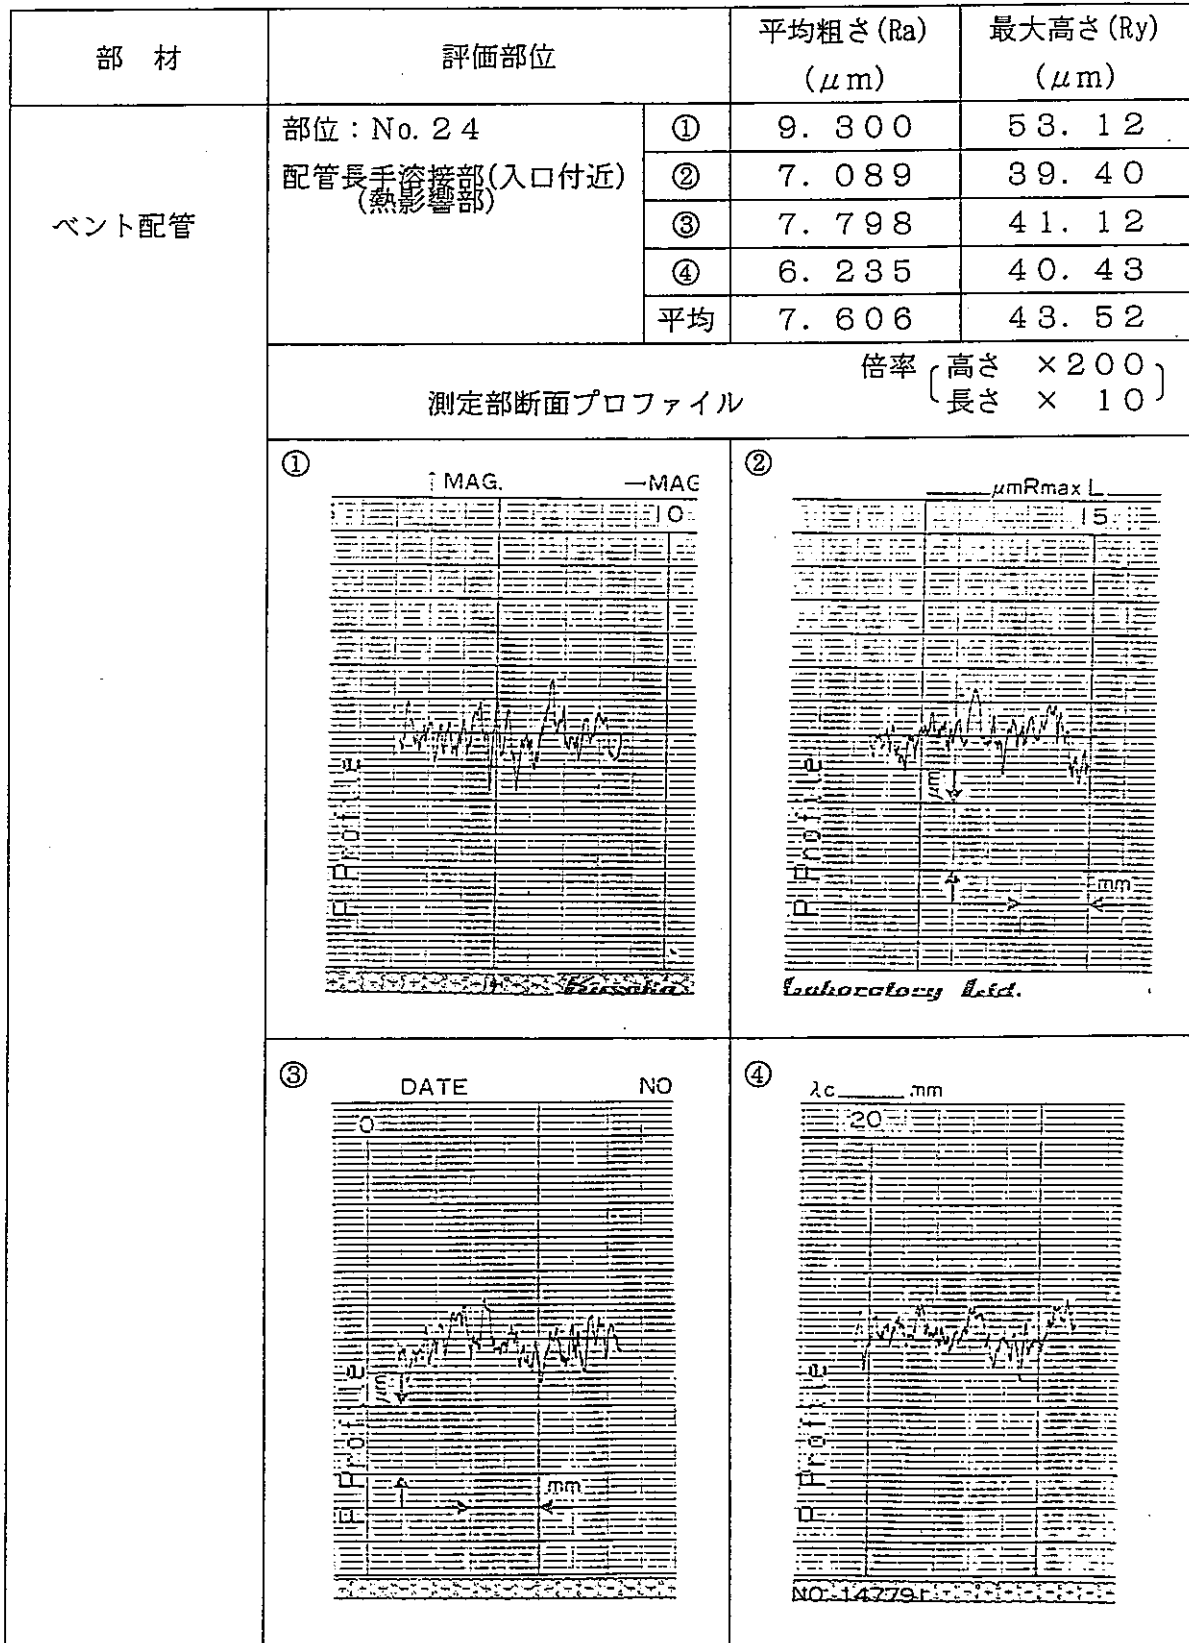 部 材
評価部位
平均粗さ(Ra)
(μm)
最大高さ(Ry)
(μm)
ベント配管
部位:No.24
配管長手溶接部(入口付近)
(熱影響部)
① 9.300 53.12
② 7.089 39.40
③ 7.798 41.12
④ 6.235 40.43
平均 7.606 43.52
測定部断面プロファイル
倍率 高さ ×200
長さ × 10
①
↑MAG. →MAG
10
P Profile
②
μmRmax L
15
μm
mm
P Profile
Laboratory Ltd.
③
DATE NO
0
μm
mm
P Profile
④
λc mm
20
P Profile
NO.